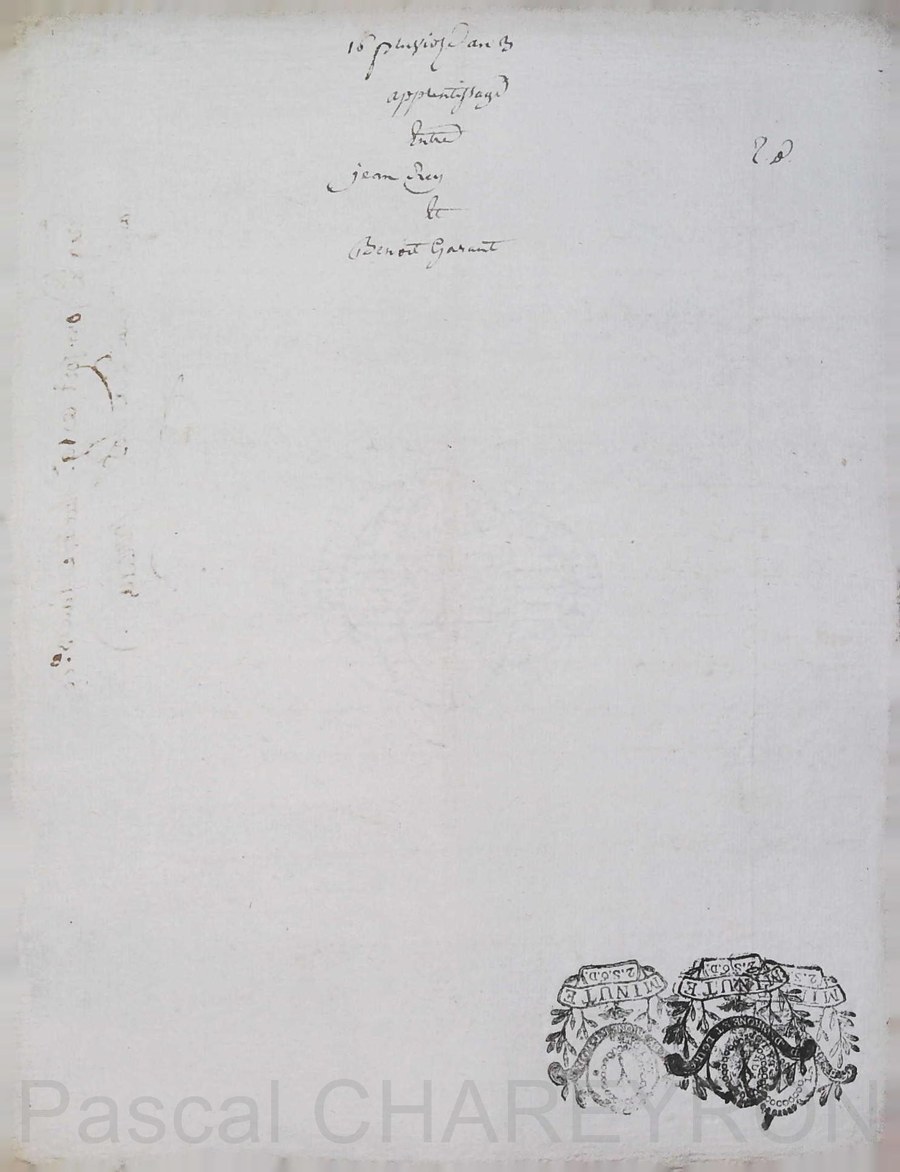 16 pluviose an 3
apprentissage
Entre
jean Rey
Et
Benoit Garant
2.S.6.D.
MINUTE
2.S.6.D.
MINUTE
Pascal CHAREYRON